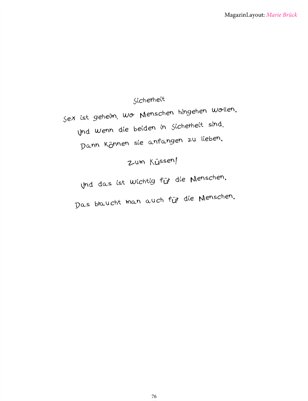 MagazinLayout: Marie Brück
Sicherheit
Sex ist geheim, wo Menschen hingehen wollen.
Und wenn die beiden in Sicherheit sind.
Dann können sie anfangen zu lieben.
Zum Küssen!
Und das ist wichtig für die Menschen.
Das braucht man auch für die Menschen.
76